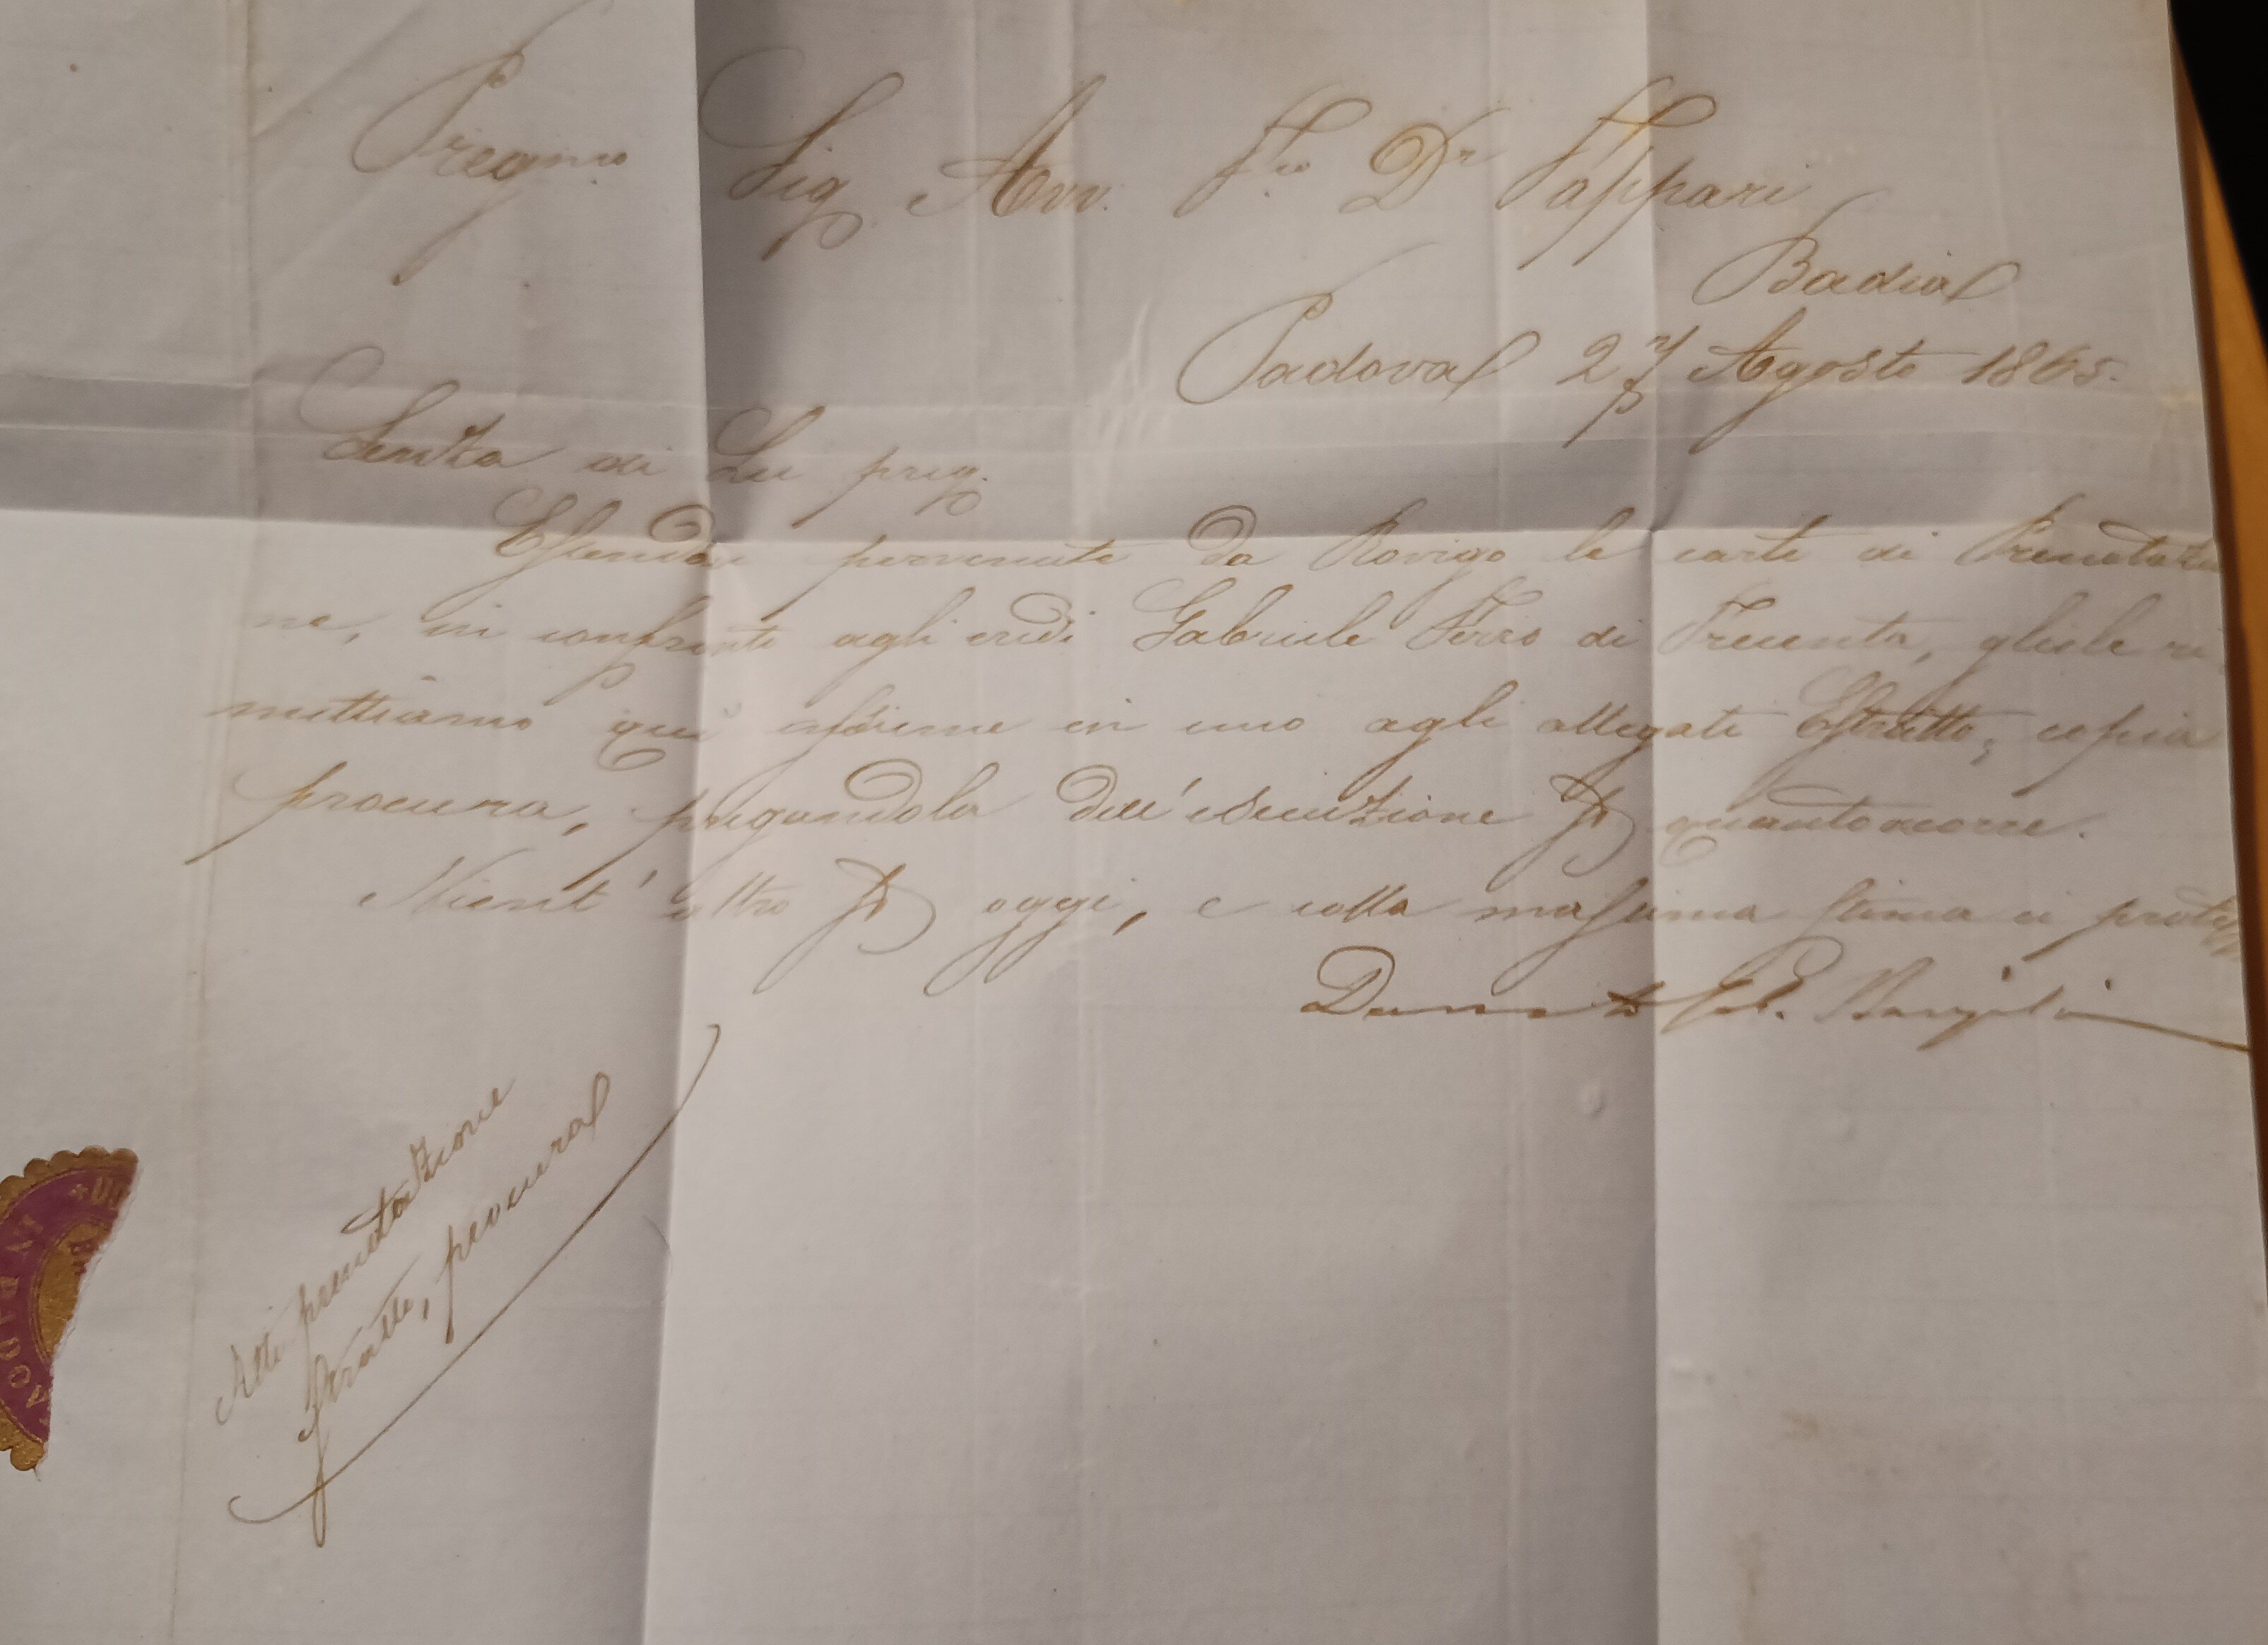 Pregmo Sig. Avv. Fco Dr Fappari
Badia
Padova 27 Agosto 1865.
Senza di Lei preg.
Essendoci pervenute da Rovigo le carte di Prenotazio
ne, in confronto agli eredi Gabriele Ferro di Trecenta, gliele ri
mettiamo qui assieme in uno agli allegati Estratto, copia
procura, pregandola dell' esecuzione p quanto occorre.
Nient' altro p oggi, e colla massima stima ci protes
Donato
Atti prenotazione
Estratto, procura